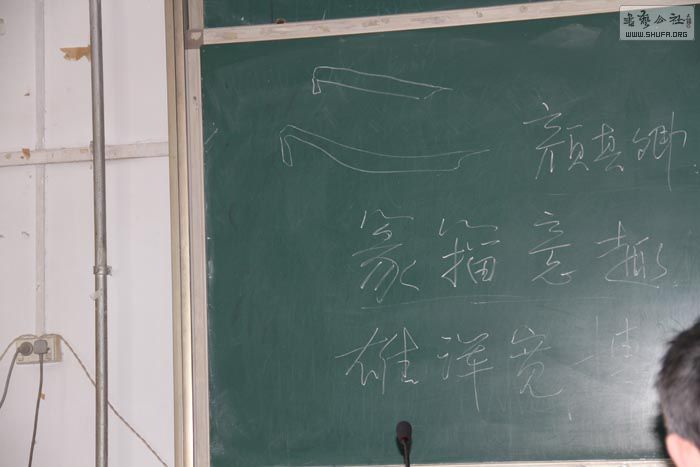 书艺公社
WWW.SHUFA.ORG
颜真卿
篆籀意趣
雄浑宽博